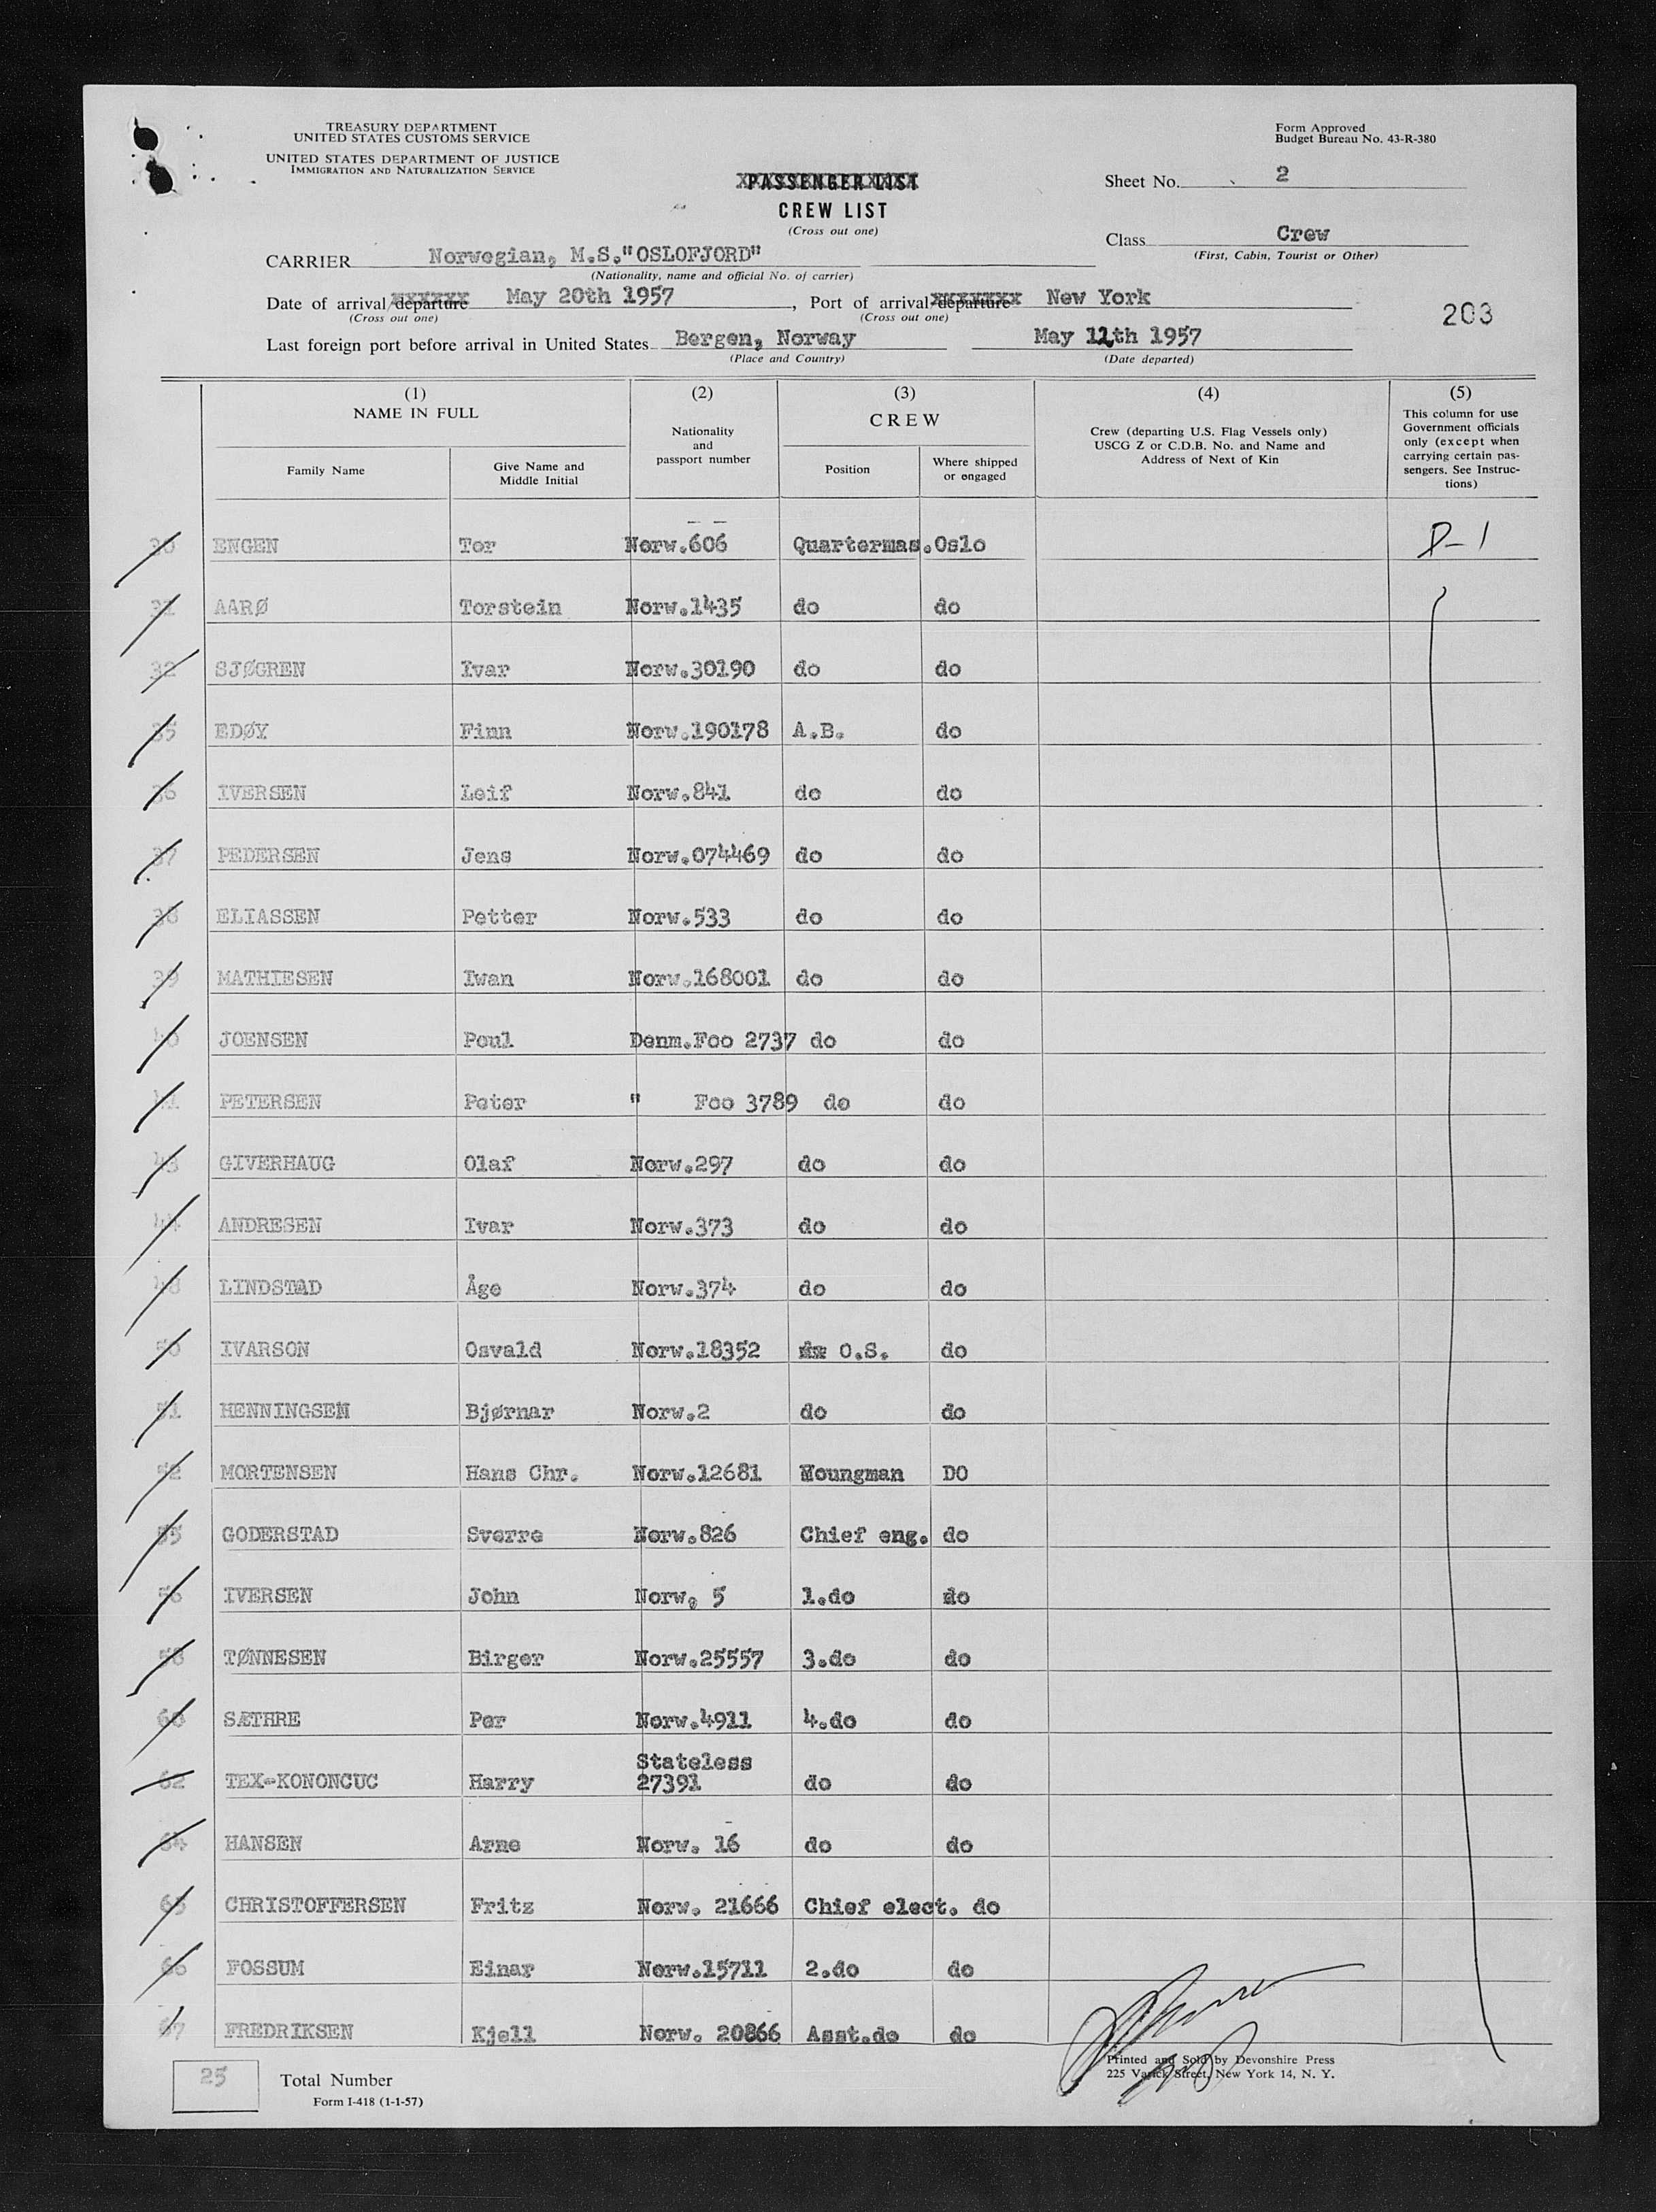 TREASURY DEPARTMENT
UNITED STATES CUSTOMS SERVICE
UNITED STATES DEPARTMENT OF JUSTICE
IMMIGRATION AND NATURALIZATION SERVICE
Form Approved
Budget Bureau No. 43-R-380
PASSENGER LIST
CREW LIST
(Cross out one)
Sheet No. 2
Class Crew
(First, Cabin, Tourist or Other)
CARRIER Norwegian, M.S."OSLOFJORD"
(Nationality, name and official No. of carrier)
Date of arrival/departure May 20th 1957, Port of arrival departure New York
(Cross out one) (Cross out one)
203
Last foreign port before arrival in United States Bergen, Norway May 11th 1957
(Place and Country) (Date departed)
(1) (2) (3) (4) (5)
NAME IN FULL
Family Name
Give Name and
Middle Initial
Nationality
and
passport number
CREW
Position
Where shipped
or engaged
Crew (departing U.S. Flag Vessels only)
USCG Z or C.D.B. No. and Name and
Address of Next of Kin
This column for use
Government officials
only (except when
carrying certain pas-
sengers. See Instruc-
tions)
30 ENGEN Tor Norw.606 Quartermas. Oslo D-1
31 AARØ Torstein Norw.1435 do do
32 SJØGREN Ivar Norw.30190 do do
35 EDØY Finn Norw.190178 A.B. do
36 IVERSEN Leif Norw.841 do do
37 PEDERSEN Jens Norw.074469 do do
38 ELIASSEN Petter Norw.533 do do
39 MATHIESEN Iwan Norw.168001 do do
40 JOENSEN Poul Denm.Foo 2737 do do
41 PETERSEN Peter " Foo 3789 do do
43 GIVERHAUG Olaf Norw.297 do do
44 ANDRESEN Ivar Norw.373 do do
48 LINDSTAD Åge Norw.374 do do
50 IVARSON Osvald Norw.18352 O.S. do
51 HENNINGSEN Bjørnar Norw.2 do do
52 MORTENSEN Hans Chr. Norw.12681 Youngman DO
55 GODERSTAD Sverre Norw.826 Chief eng. do
56 IVERSEN John Norw. 5 1.do do
58 TØNNESEN Birger Norw.25557 3.do do
60 SÆTHRE Per Norw.4911 4.do do
62 TEX-KONONCUC Harry Stateless
27391 do do
64 HANSEN Arne Norw. 16 do do
65 CHRISTOFFERSEN Fritz Norw. 21666 Chief elect. do
66 FOSSUM Einar Norw.15711 2.do do
67 FREDRIKSEN Kjell Norw. 20866 Asst.do do
25 Total Number
Form I-418 (1-1-57)
Printed and Sold by Devonshire Press
225 Varick Street, New York 14, N. Y.